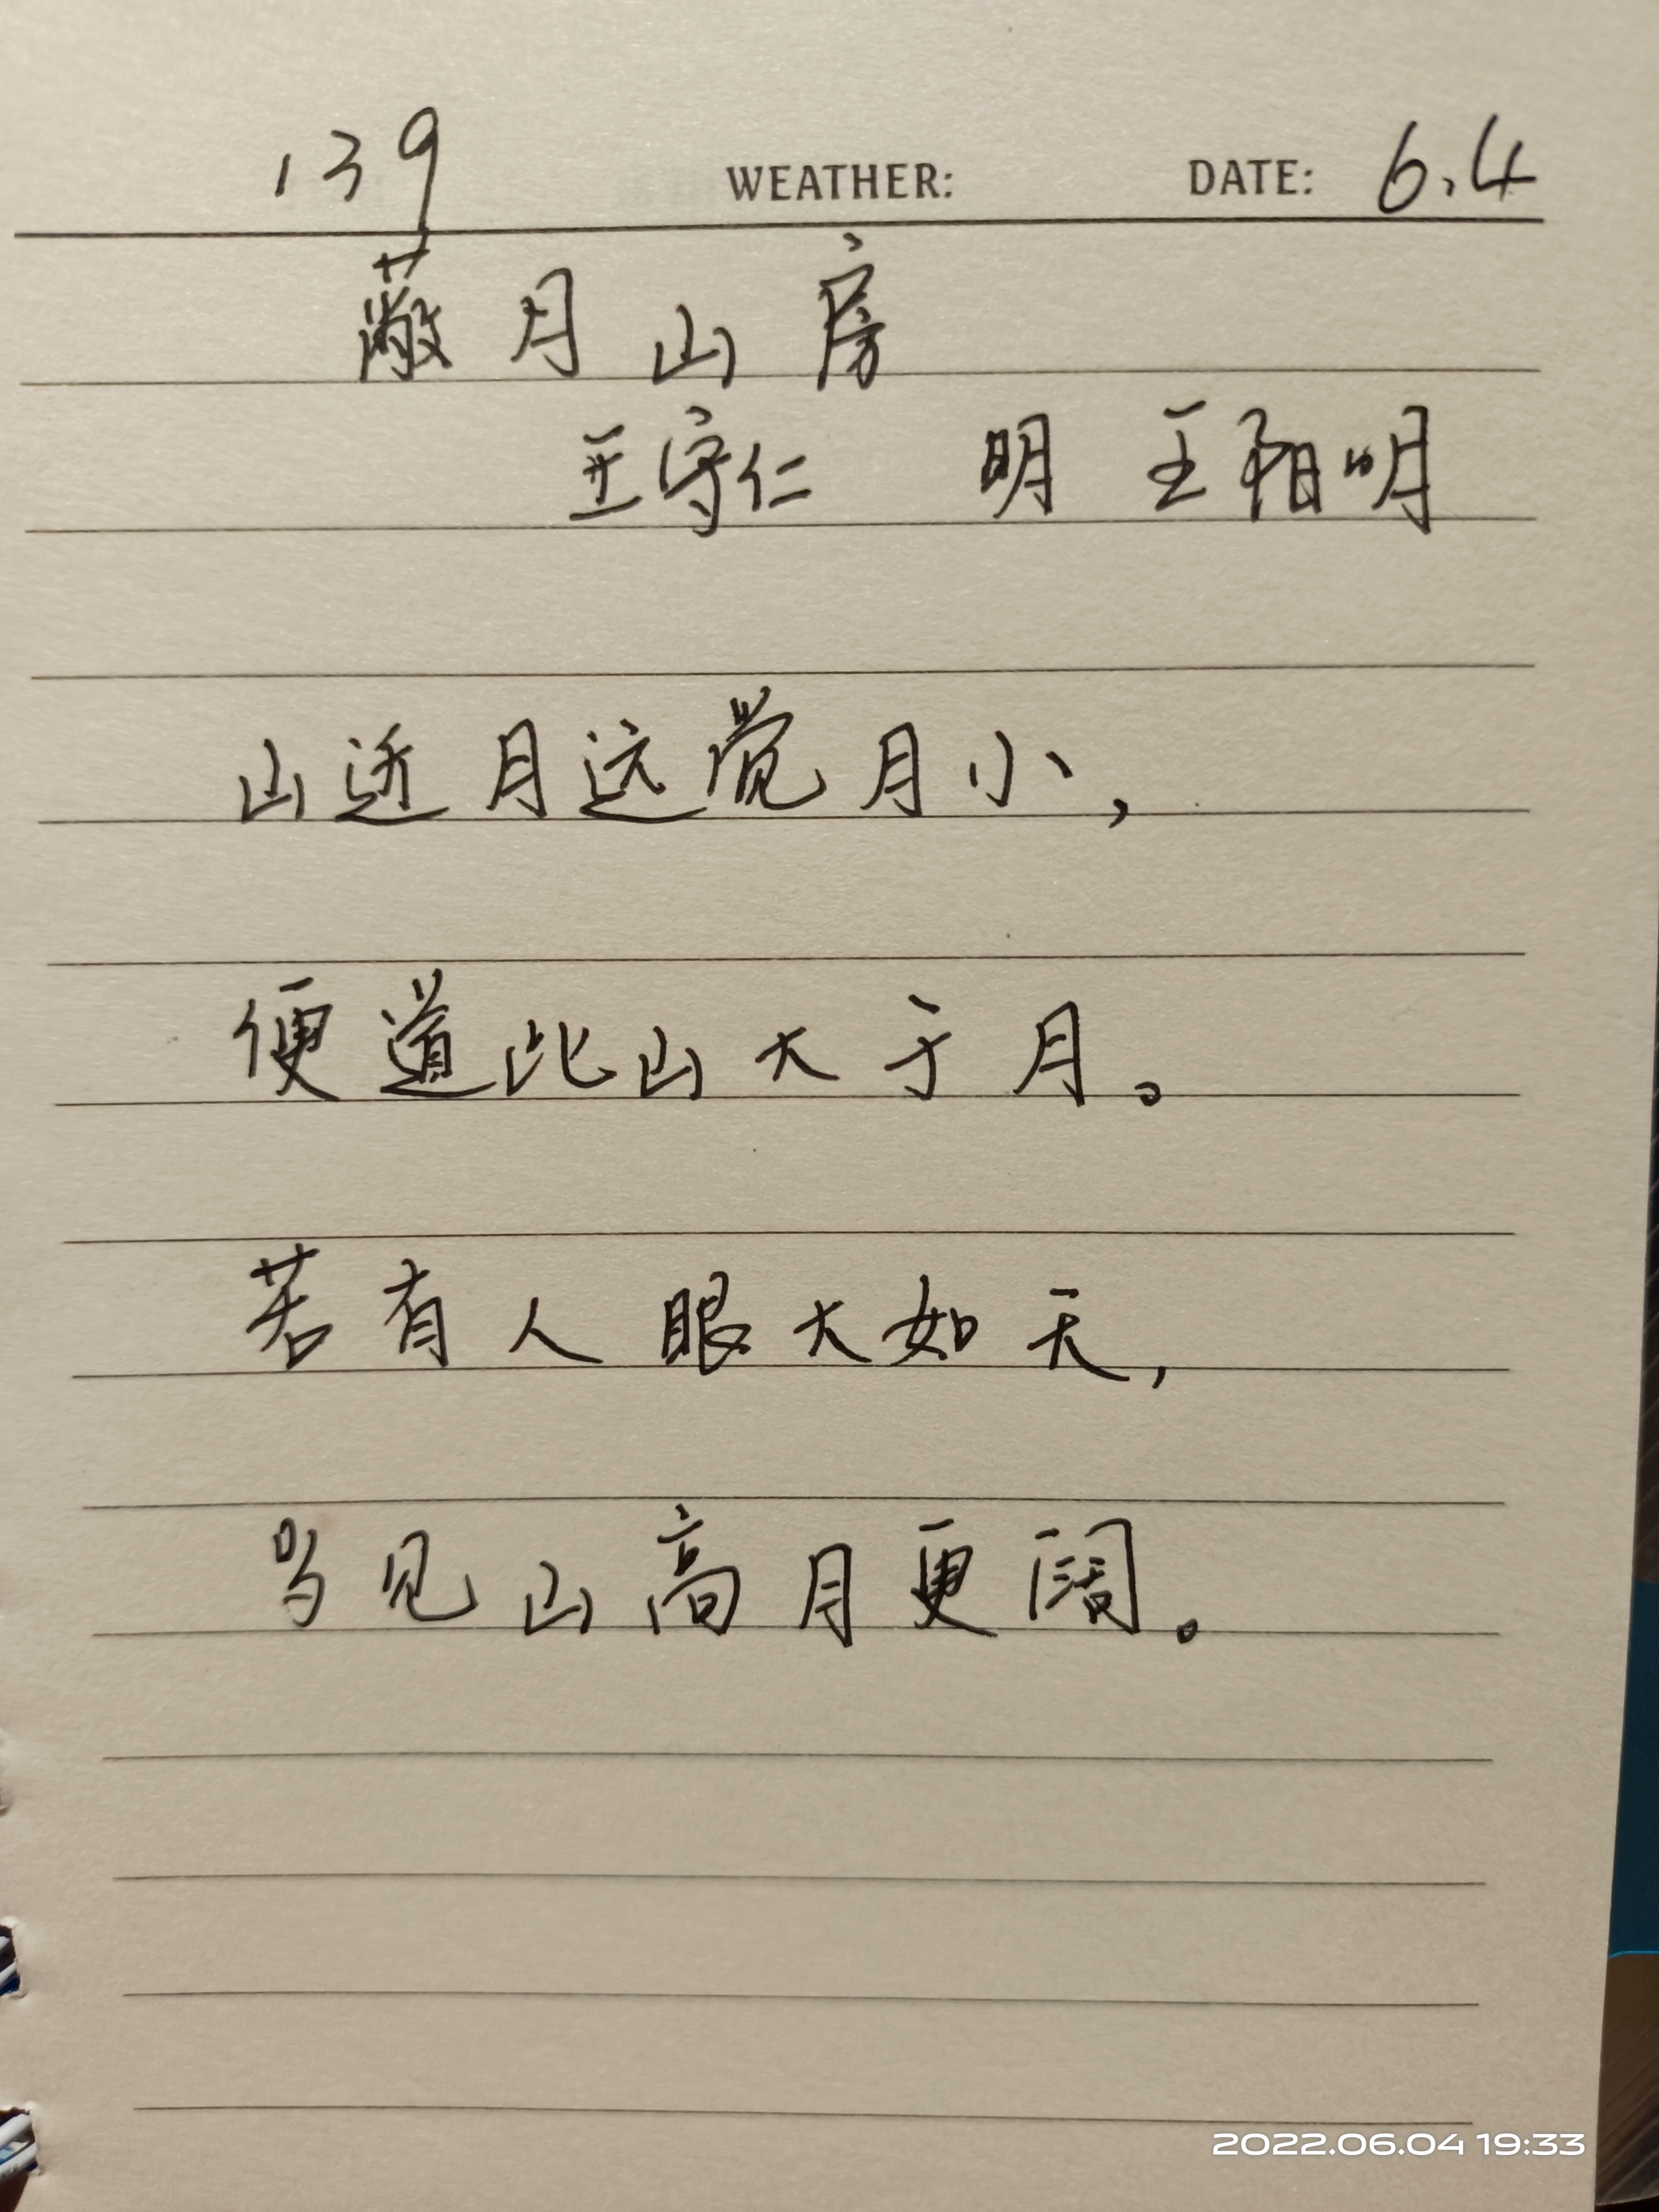 139 WEATHER: DATE: 6.4
蔽月山房
王守仁 明 王阳明
山近月远觉月小，
便道此山大于月。
若有人眼大如天，
当见山高月更阔。
2022.06.04 19:33